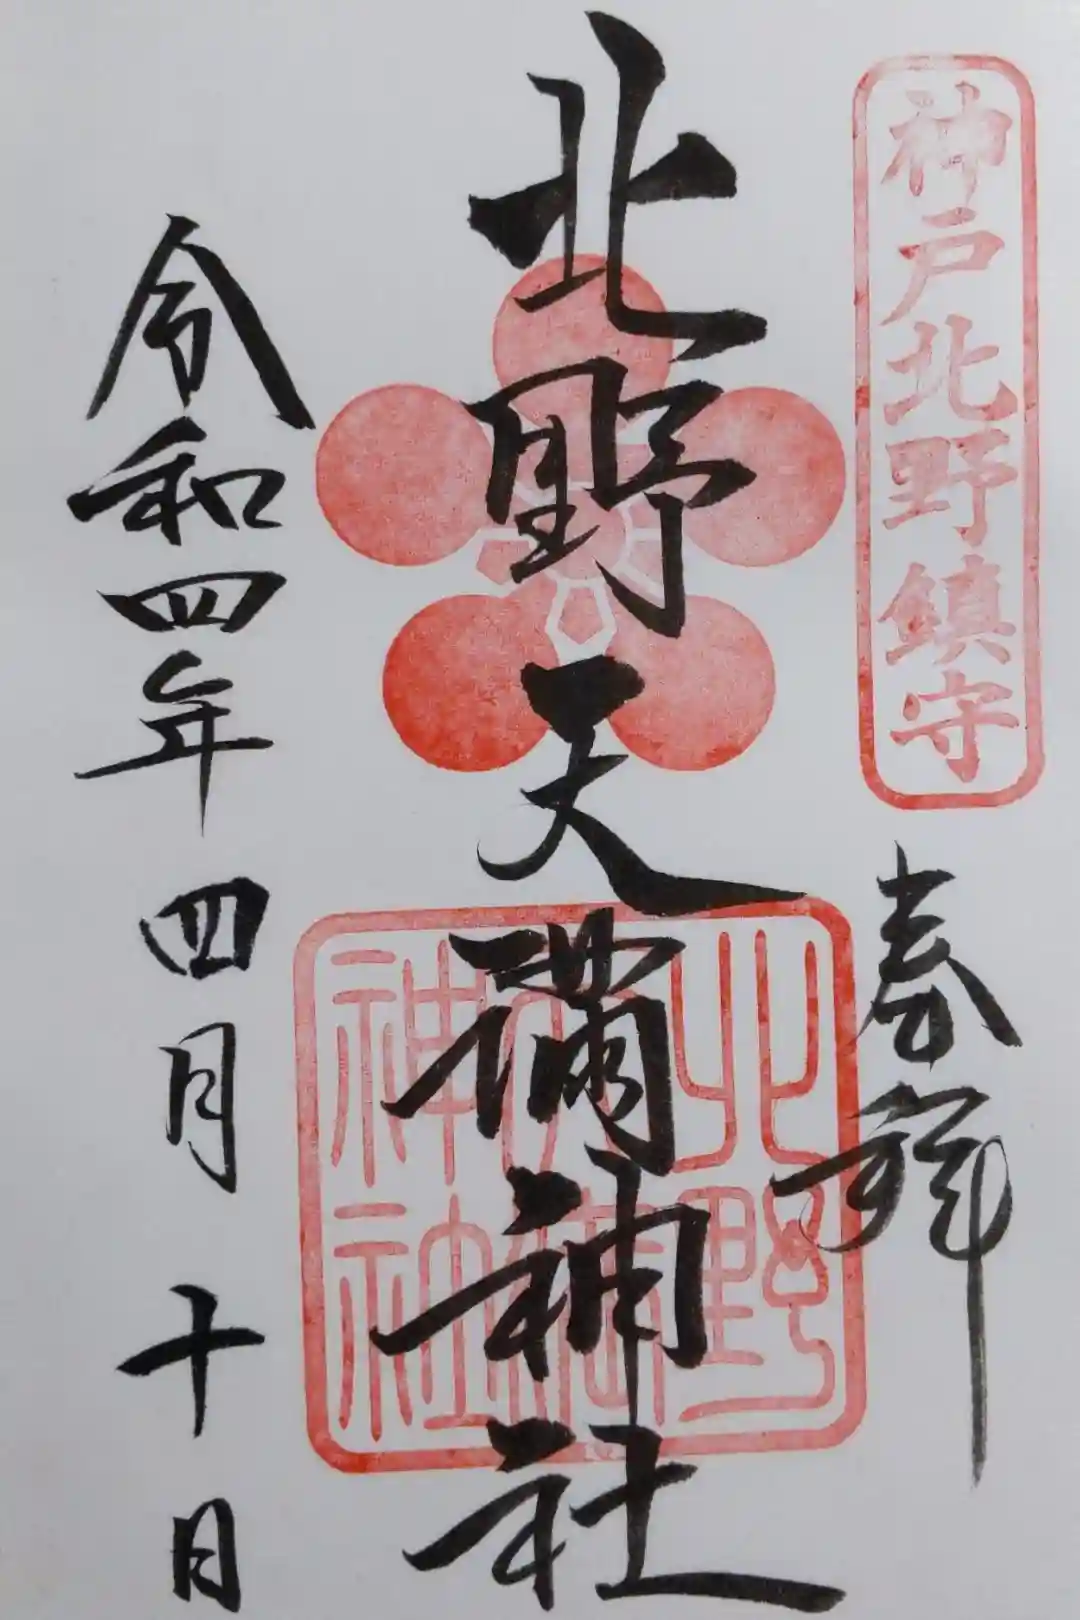 神戸北野鎮守
奉拝
北野天満神社
北野
天満
神社
令和四年四月十日